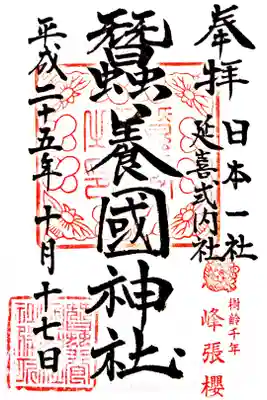 奉拝
日本一社
延喜式内社
樹齢千年
峰張櫻
蠶養國神社
平成二十五年十月十七日